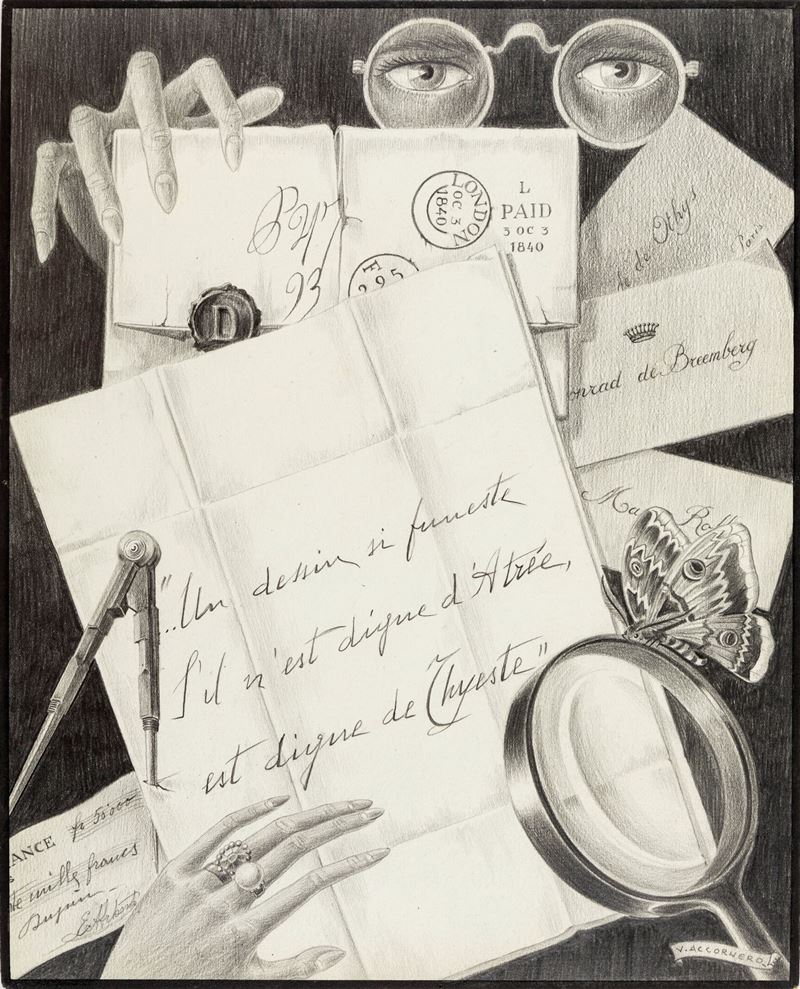 LONDON
OC 3
1840
L
PAID
3 OC 3
1840
F
295
D
de Othys
Paris
nrad de Breemberg
Ma
"..Un dessin si funeste
S'il n'est digne d'Atrée,
est digne de Thyeste"
ANCE fr 50'000
te mille francs
Dupin
V. ACCORNERO